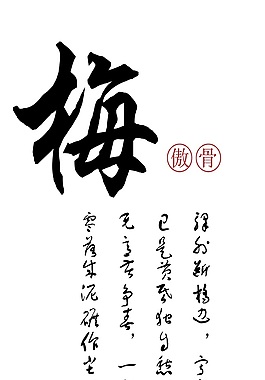 梅
傲骨
驿外断桥边，
已是黄昏独自愁
无意苦争春，一
零落成泥碾作尘